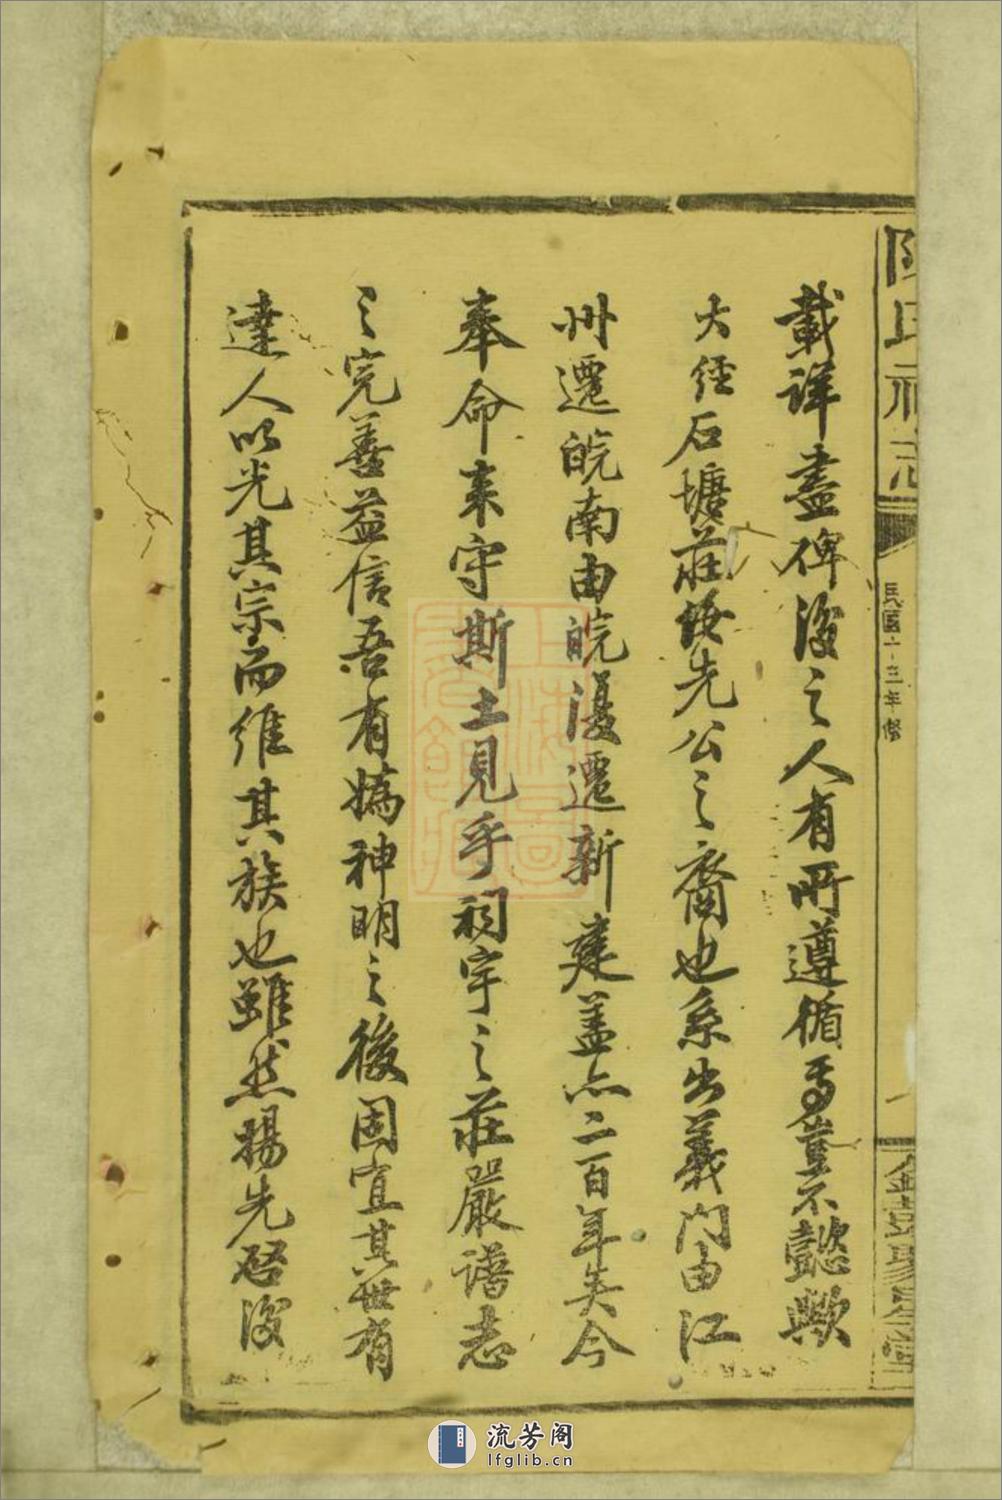 載詳盡俾後之人有所遵循焉豈不懿歟
大經石塘莊後先公之裔也系出義門由江
州遷皖南由皖復遷新建盖亦二百年矣今
奉命来守斯土見乎祠宇之莊嚴譜志
之完善益信吾有媯神明之後固宜其世有
達人以光其宗而維其族也雖然揚先啓後
民國十三年修
流芳阁
lfglib.cn